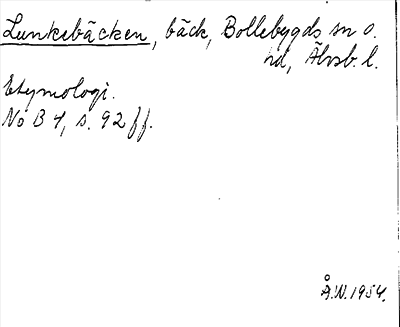 Lunkebäcken, bäck, Bollebygds sn o.
hd, Älvsb. l.
Etymologi.
No B 4, s. 92 ff.
Å.W. 1954.